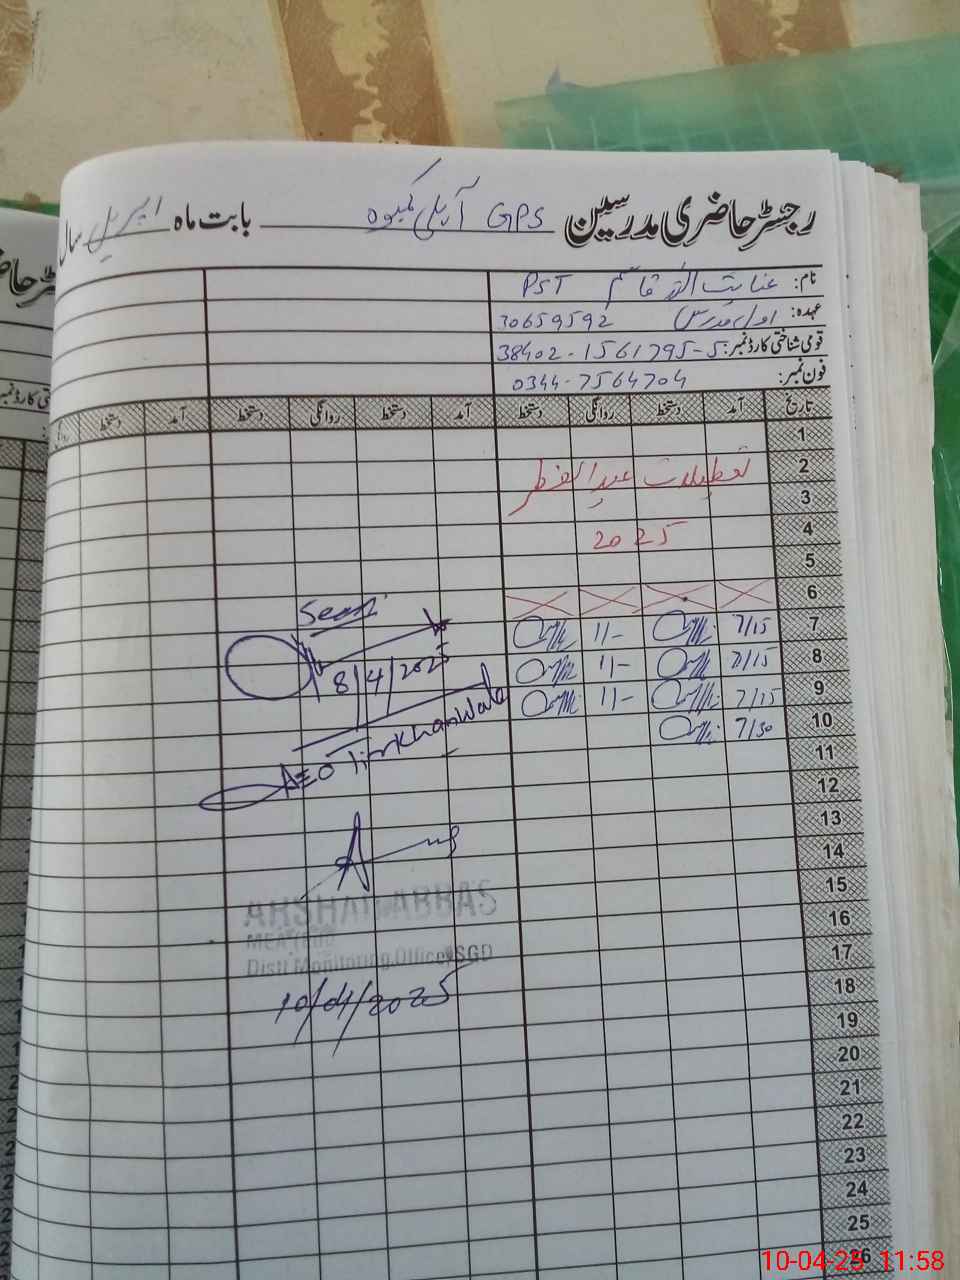 رجسٹر حاضری مدرسین GPS آرلی کمبوہ بابت ماہ اپریل سال
نام: عنایت اللہ قاسم PST
عہدہ: اول مدرس 30659592
قومی شناختی کارڈ نمبر: 38402-1561795-5
فون نمبر: 0344-7564704
تاریخ آمد دستخط روانگی دستخط آمد دستخط روانگی دستخط آمد دستخط
1
2 تعطیلات عید الفطر
3
4 2025
5
6
7 7/15 11/-
8 7/15 11/-
9 7/15 11/-
10 7/30
11
12
13
14
15
16
17
18
19
20
21
22
23
24
25
26
Seen
8/4/2025
AEO
ARSHAD ABBAS
MEA
Distt Monitoring Officer SGD
10/04/2025
10-04-25 11:58